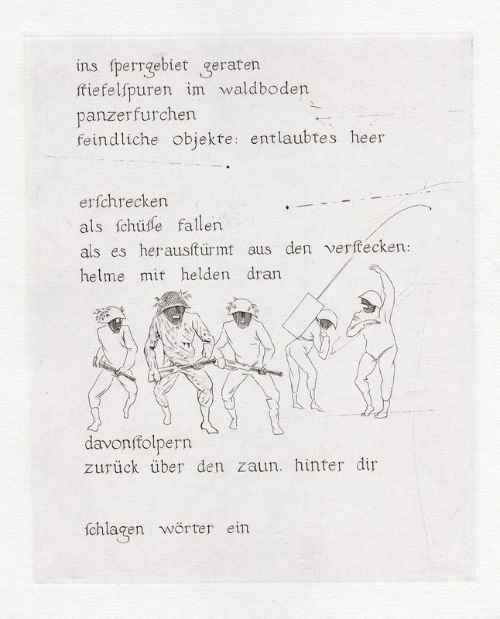 ins ſperrgebiet geraten
ſtiefelſpuren im waldboden
panzerfurchen
feindliche objekte: entlaubtes heer
erſchrecken
als ſchüſſe fallen
als es herausſtürmt aus den verſtecken:
helme mit helden dran
davonſtolpern
zurück über den zaun. hinter dir
ſchlagen wörter ein